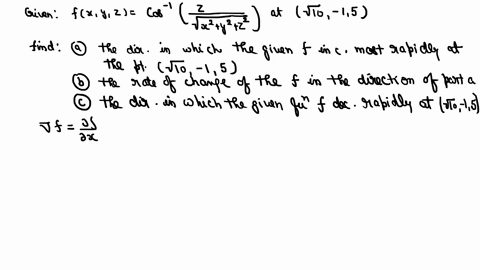 Given: f(x,y,z) = Cos⁻¹(z/√(x²+y²+z²)) at (√10, -1, 5)
find: (a) the dir. in which the given f inc. most rapidly at
the pt. (√10, -1, 5)
(b) the rate of change of the f in the direction of part a
(c) the dir. in which the given fuⁿ f dec. rapidly at (√10, -1, 5)
∇f = ∂f/∂x